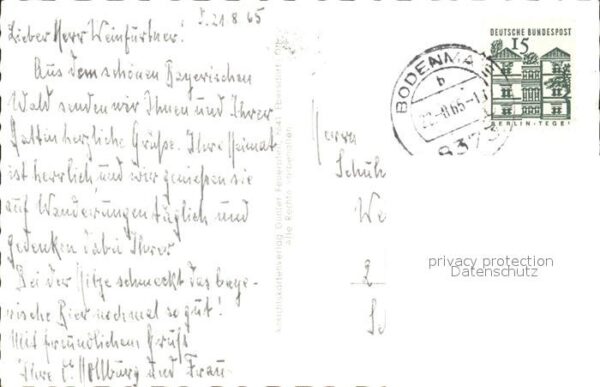 21.8.65
Lieber Herr Weinfurtner!
Aus dem schönen Bayerischen
Wald senden wir Ihnen und Ihrer
Gattin herzliche Grüße. Ihre Heimat
ist herrlich und wir genießen sie
auf Wanderungen täglich und
gedenken dabei Ihrer
Bei der Hitze schmeckt das baye-
rische Bier nochmal so gut!
Mit freundlichem Gruß
Ihre und Frau
Ansichtskartenverlag Günter
Alle Rechte vorbehalten
Herrn
Schul
We
2
Sc
BODENMA
b
65-1
8373
DEUTSCHE BUNDESPOST
15
BERLIN-TEGEL
privacy protection
Datenschutz